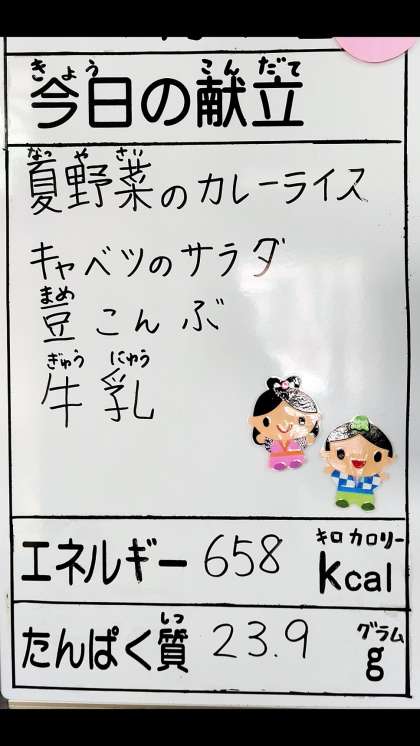 きょう こんだて
今日の献立
なつ や さい
夏野菜のカレーライス
キャベツのサラダ
まめ
豆こんぶ
ぎゅう にゅう
牛乳
キロカロリー
エネルギー 658 kcal
しつ グラム
たんぱく質 23.9 g